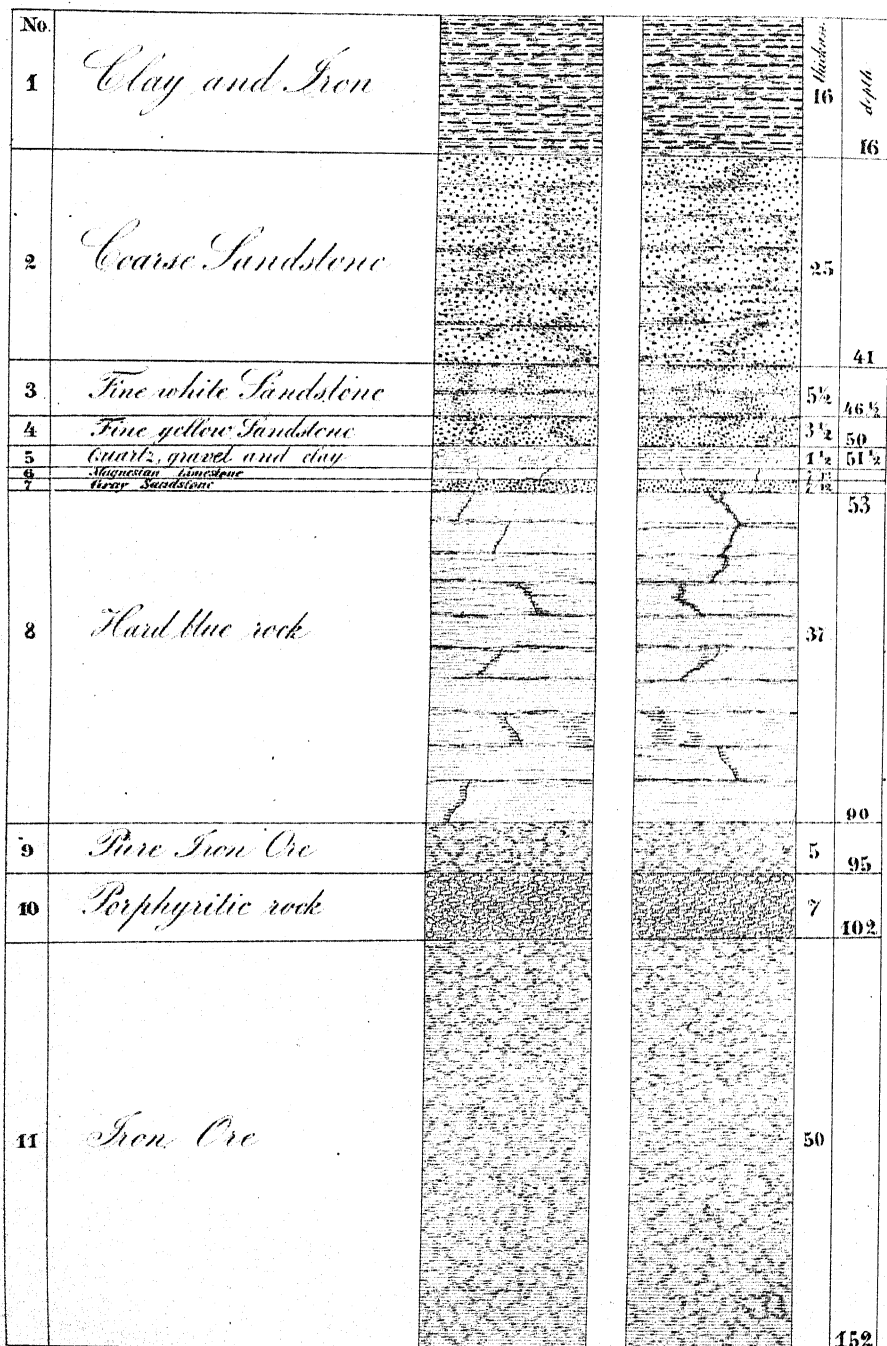 No. thickns. depth
1 Clay and Iron 16 16
2 Coarse Sandstone 25 41
3 Fine white Sandstone 5½ 46½
4 Fine yellow Sandstone 3½ 50
5 Quartz, gravel and clay 1½ 51½
6 Magnesian Limestone
7 Gray Sandstone 53
8 Hard blue rock 37 90
9 Pure Iron Ore 5 95
10 Porphyritic rock 7 102
11 Iron Ore 50 152